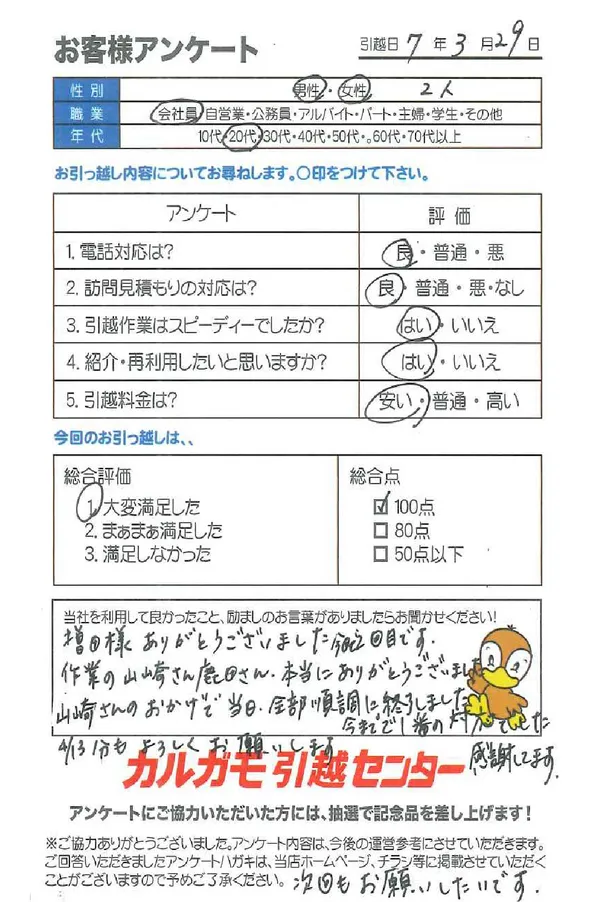 お客様アンケート
引越日 7 年 3 月 29 日
性別 男性・女性 2人
職業 会社員・自営業・公務員・アルバイト・パート・主婦・学生・その他
年代 10代・20代・30代・40代・50代・。60代・70代以上
お引っ越し内容についてお尋ねします。〇印をつけて下さい。
アンケート 評価
1. 電話対応は? 良・普通・悪
2. 訪問見積もりの対応は? 良・普通・悪・なし
3. 引越作業はスピーディーでしたか? はい・いいえ
4. 紹介・再利用したいと思いますか? はい・いいえ
5. 引越料金は? 安い・普通・高い
今回のお引っ越しは、、
総合評価
1. 大変満足した
2. まぁまぁ満足した
3. 満足しなかった
総合点
☑ 100点
□ 80点
□ 50点以下
当社を利用して良かったこと、励ましのお言葉がありましたらお聞かせください!
増田様 ありがとうございました 2回目です。
作業の山崎さん鹿田さん、本当にありがとうございました
山崎さんのおかげで当日、全部順調に終りました
今までで1番の対応でした
感謝してます。
4/13分もよろしくお願いします
カルガモ引越センター
アンケートにご協力いただいた方には、抽選で記念品を差し上げます!
※ご協力ありがとうございました。アンケート内容は、今後の運営参考にさせていただきます。
ご回答いただきましたアンケートハガキは、当店ホームページ、チラシ等に掲載させていただく
ことがございますので予めご了承ください。
次回もお願いしたいです。